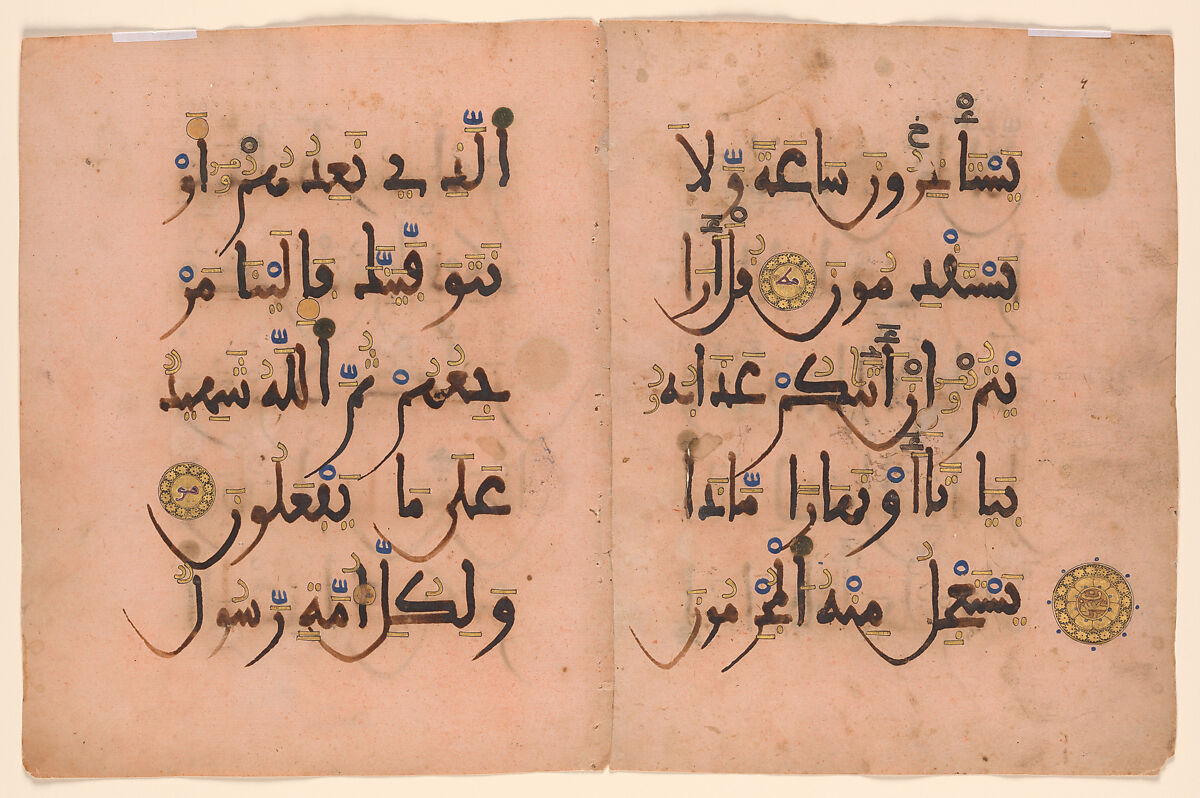 يَسْتَأْخِرُونَ سَاعَةً وَّلَا
يَسْتَقْدِمُونَ مط قُلْ أَرَا
يْتُمُ إِنْ أَتَيٰكُمْ عَذَابُهُ
بَيَاتًا أَوْ نَهَارًا مَّاذَا
يَسْتَعْجِلُ مِنْهُ الْمُجْرِمُونَ
الَّذِي نَعِدُهُمُ أَوْ
نَتَوَفَّيَنَّكَ فَإِلَيْنَا مَرْ
جِعُهُمْ ثُمَّ اللَّهُ شَهِيدٌ
عَلَى مَا يَفْعَلُونَ مو
وَلِكُلِّ أُمَّةٍ رَّسُولٌ